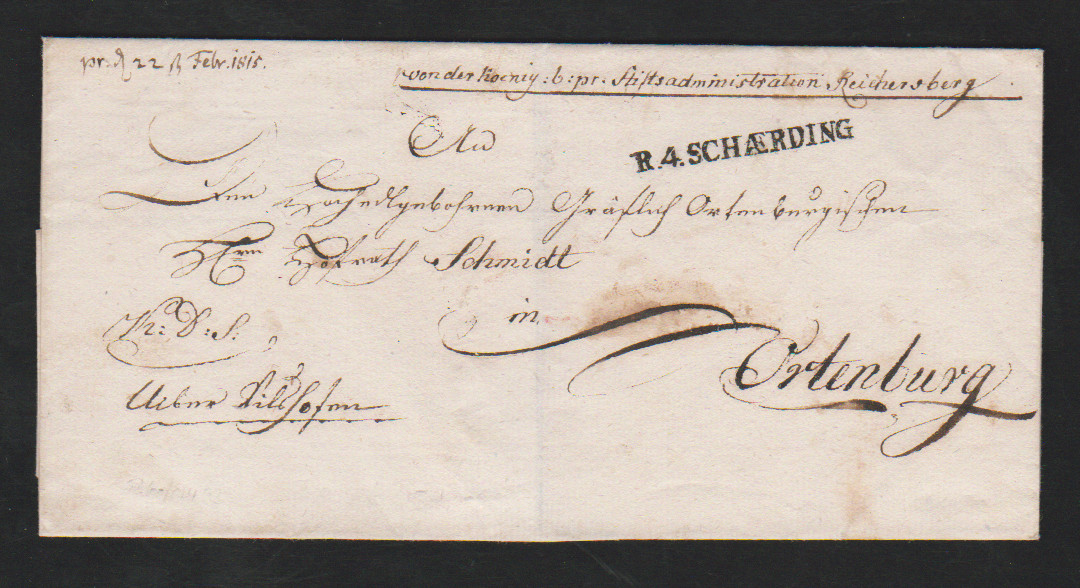 pr. d 22 t Febr. 1815.
von der koenig: b: pr. Stiftsadministration Reichersberg
An
R.4.SCHÆRDING
Den Hochedlgebohrnen Gräflich Ortenburgischen
Hrn Hofrath Schmidt
in
R: D: S:
Ortenburg
Ueber Vilshofen